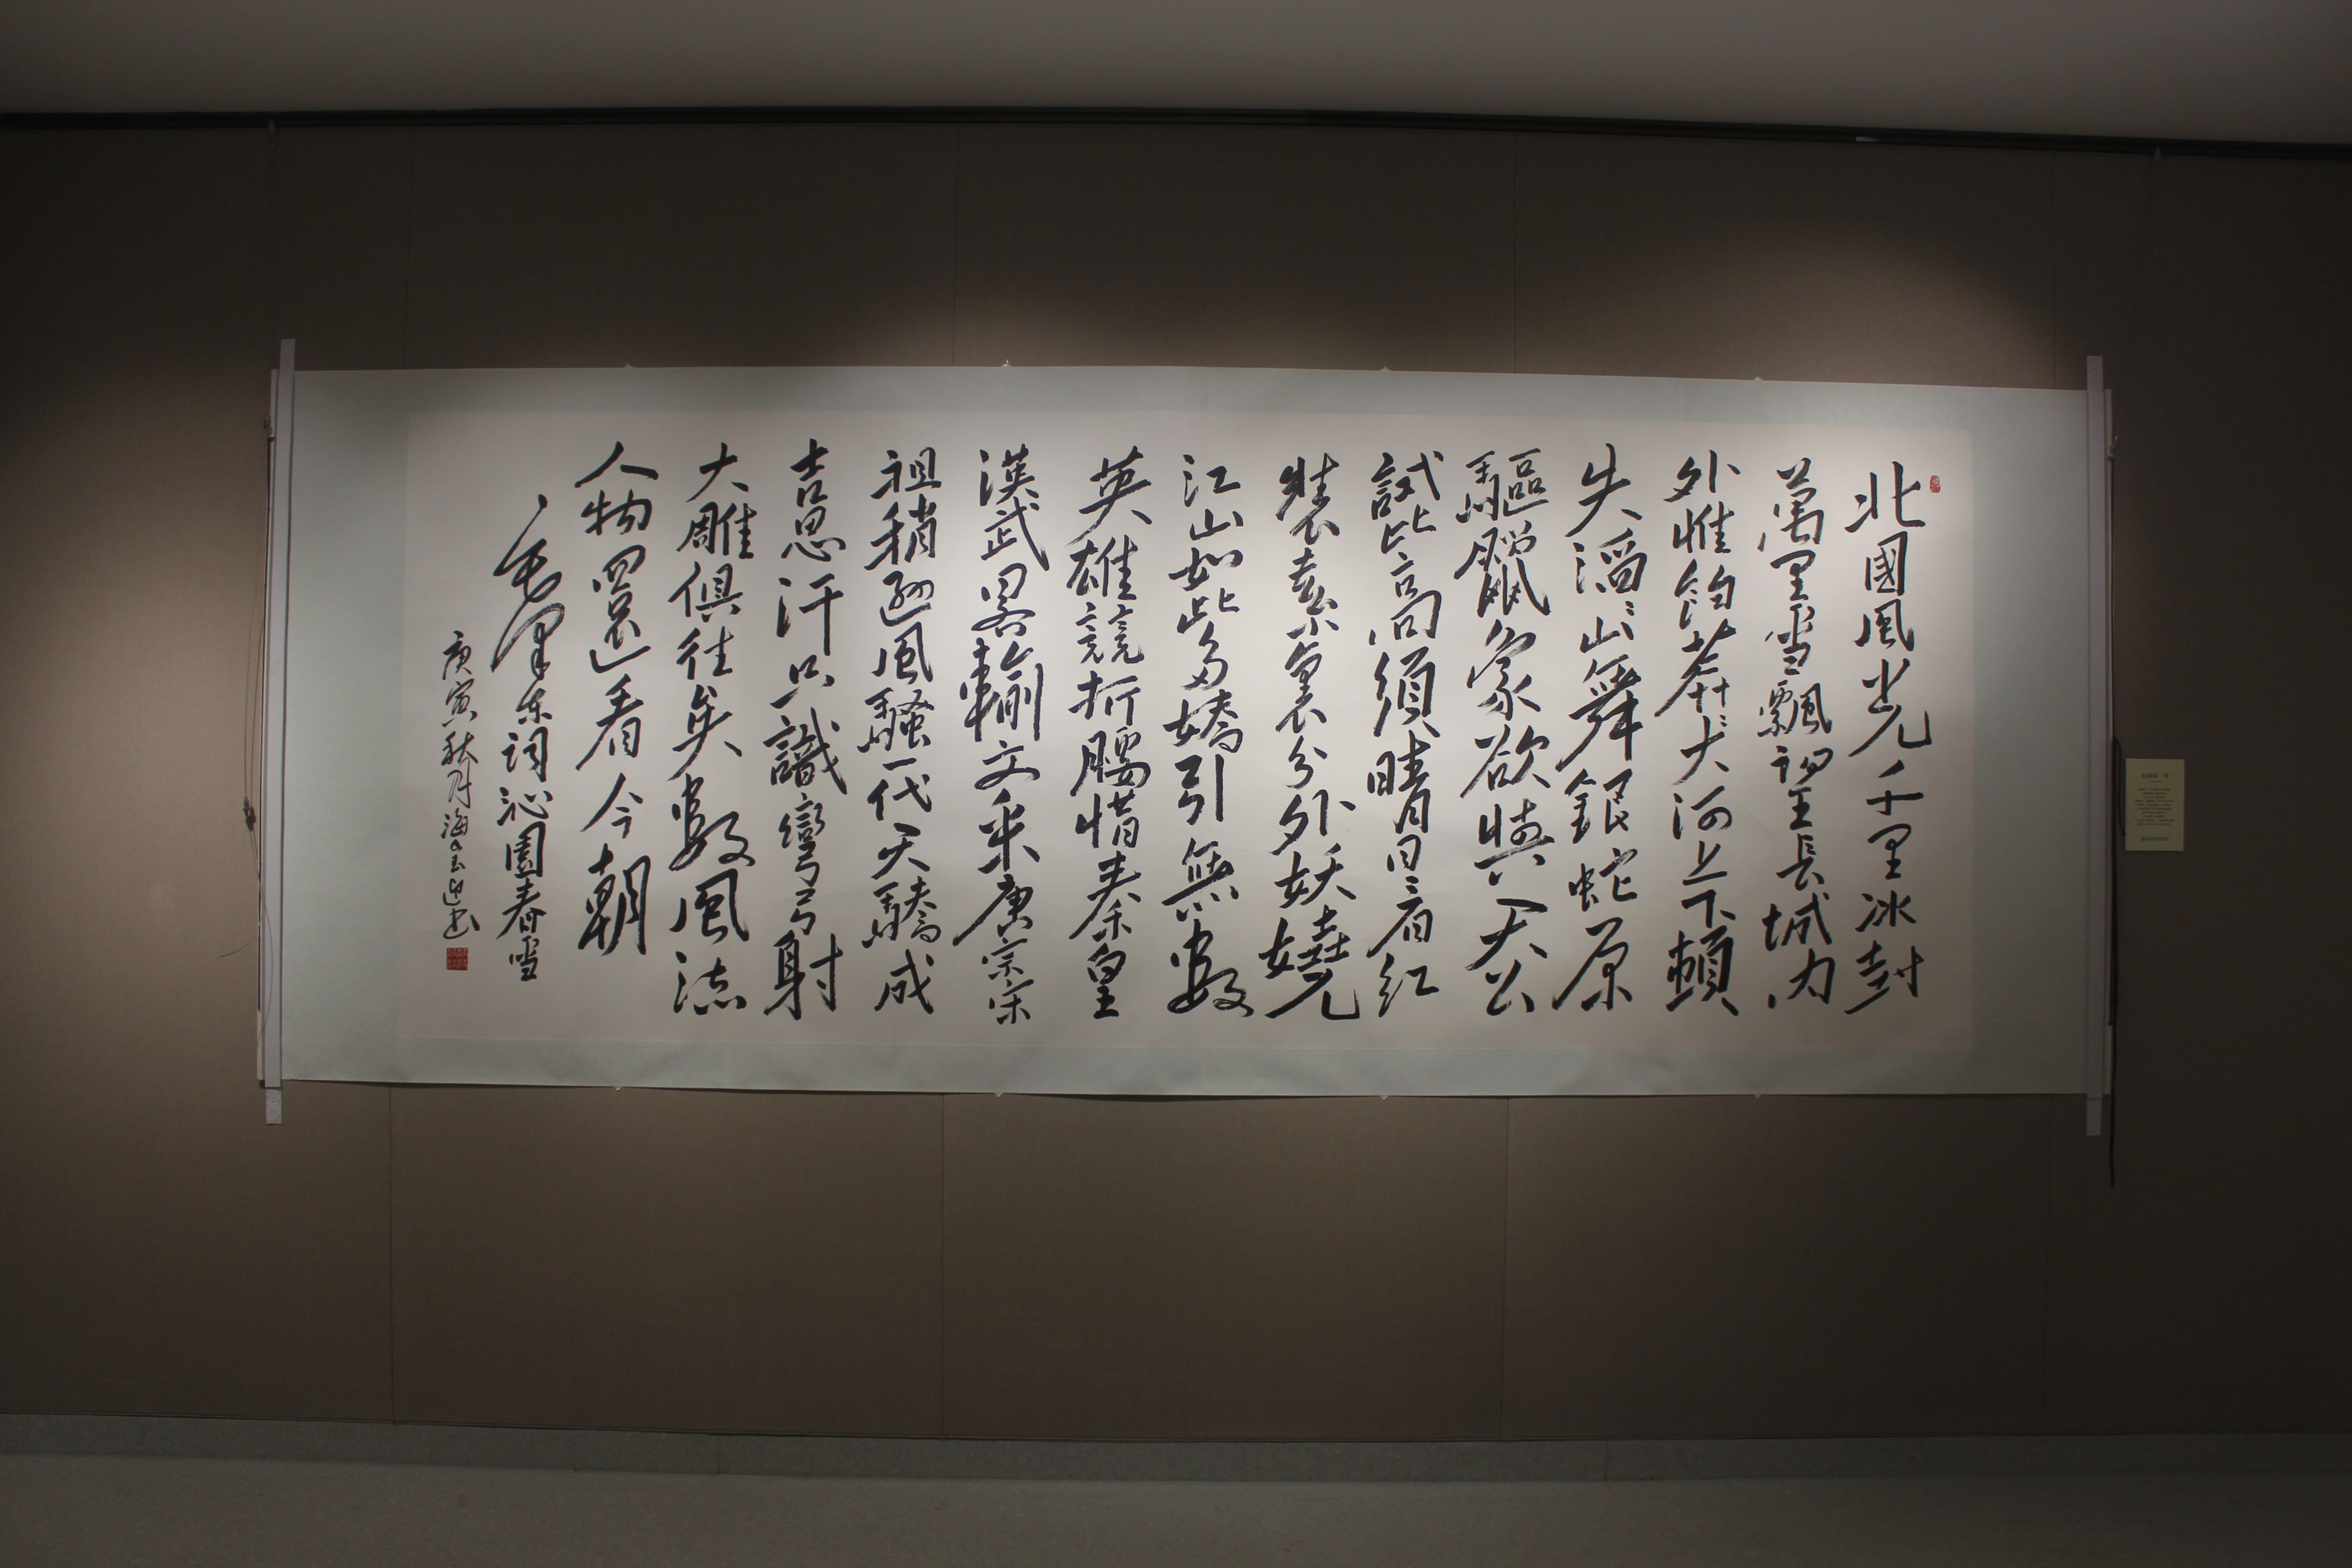 北國風光千里冰封
萬里雪飄望長城內
外惟餘莽〻大河上下頓
失滔〻山舞銀蛇原
驅臘象欲與天公
試比高須晴日看紅
裝素裹分外妖嬈
江山如此多嬌引無數
英雄競折腰惜秦皇
漢武畧輸文采唐宗宋
祖稍遜風騷一代天驕成
吉思汗只識彎弓射
大雕俱往矣數風流
人物還看今朝
毛澤东詞沁園春雪
庚寅秋月海书